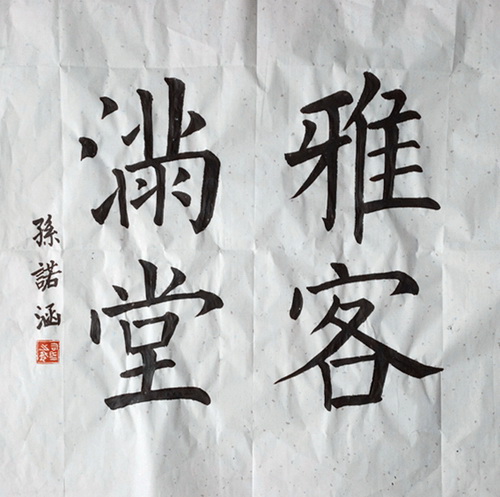 雅客
滿堂
孫諾涵